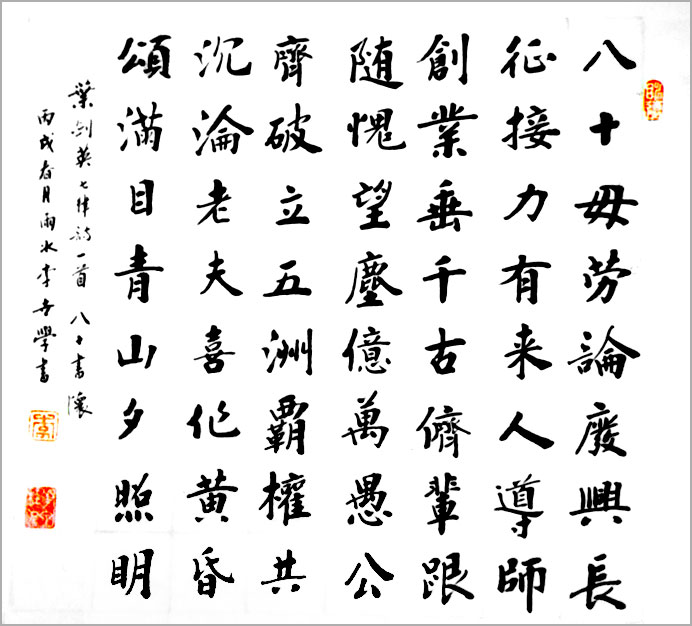 八十毋劳論廢興長
征接力有来人導師
創業垂千古儕輩跟
随愧望塵億萬愚公
齊破立五洲霸權共
沉淪老夫喜作黄昏
頌滿目青山夕照明
葉剑英七律詩一首 八十書懷
丙戌春月雨水李學書